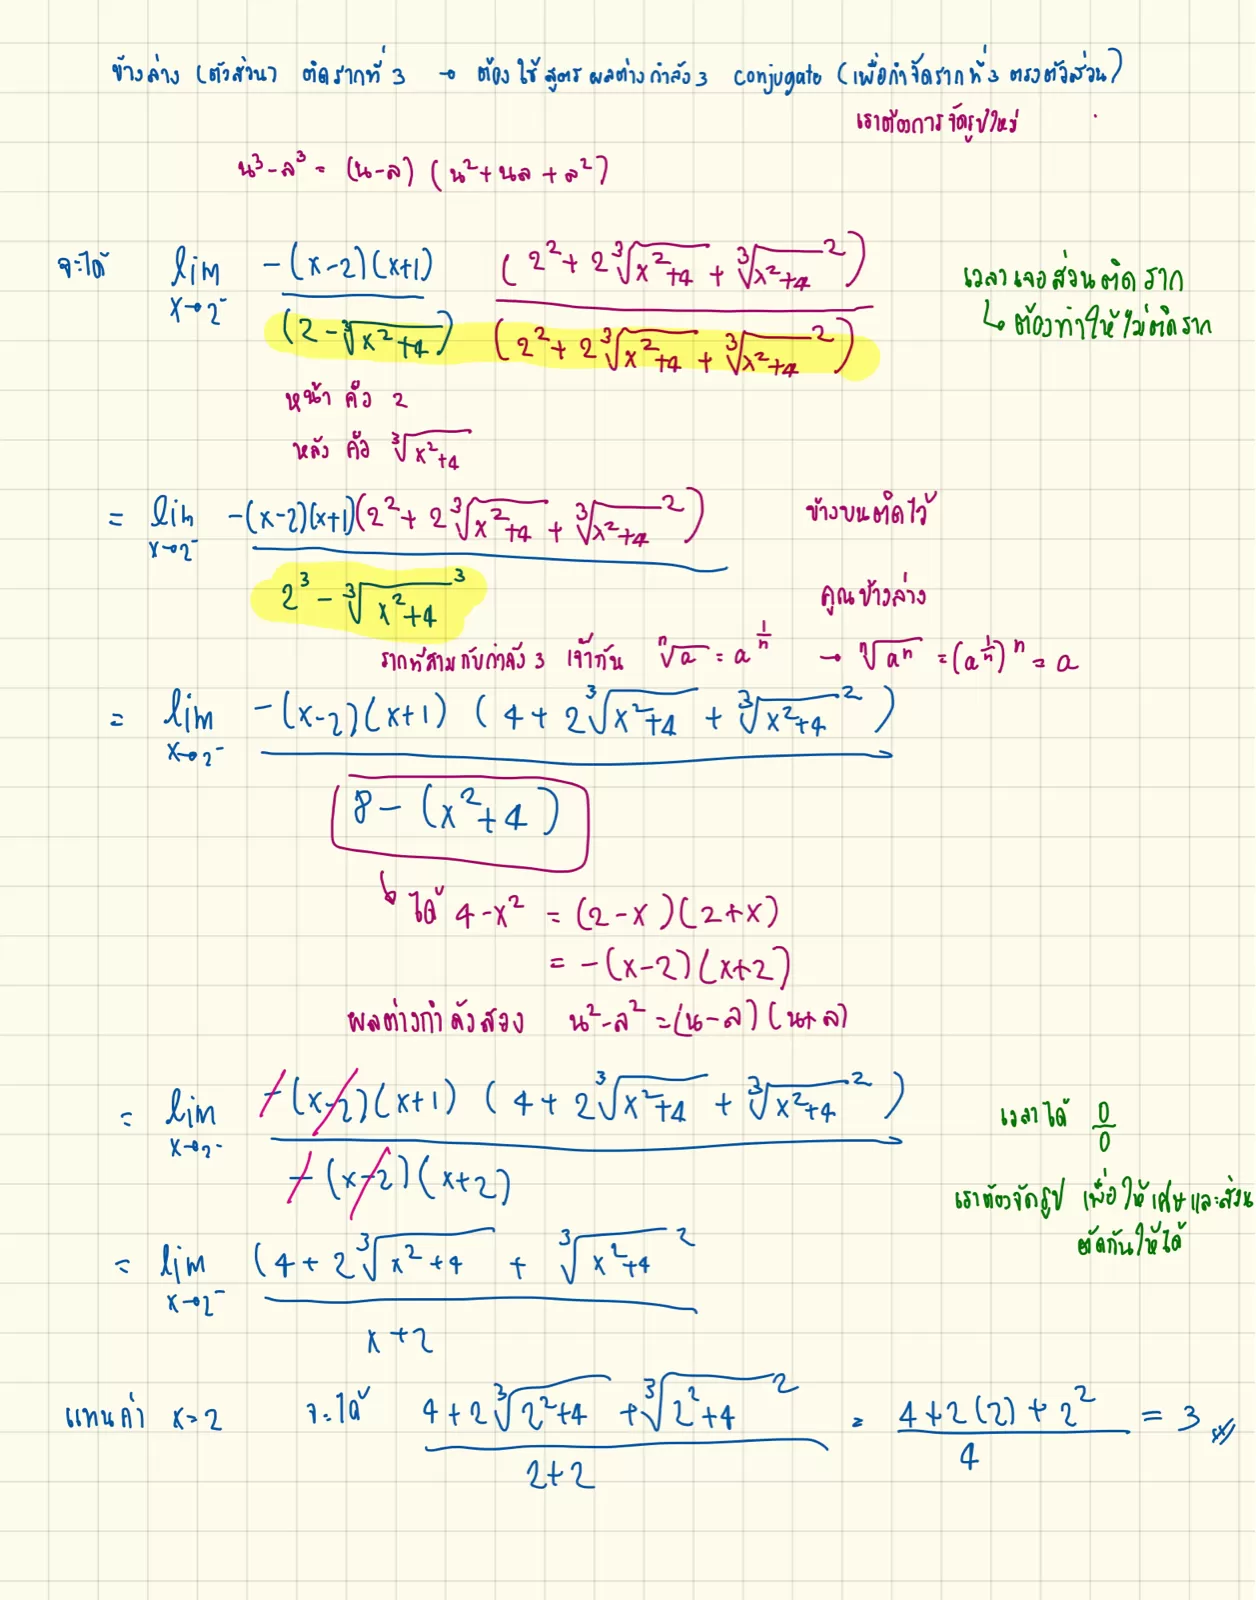 ข้างล่าง (ตัวส่วน) ติดรากที่ 3 → ต้องใช้สูตรผลต่างกำลัง 3 conjugate (เพื่อกำจัดรากที่ 3 ตรงตัวส่วน)
เราต้องการจัดรูปใหม่
น³-ล³ = (น-ล) (น²+นล+ล²)
จะได้ lim x→2⁻ -(x-2)(x+1) / (2-∛(x²+4)) (2²+2∛(x²+4) + ∛(x²+4)²) / (2²+2∛(x²+4) + ∛(x²+4)²)
เวลาเจอส่วนติดราก
↳ ต้องทำให้ไม่ติดราก
หน้า คือ 2
หลัง คือ ∛(x²+4)
= lim x→2⁻ -(x-2)(x+1)(2²+2∛(x²+4) + ∛(x²+4)²) / 2³-∛(x²+4)³
ข้างบนติดไว้
คูณข้างล่าง
รากที่สามกับกำลัง 3 เจ๊ากัน ⁿ√a = a^(1/n) → ⁿ√aⁿ = (a^(1/n))ⁿ = a
= lim x→2⁻ -(x-2)(x+1) (4+2∛(x²+4) + ∛(x²+4)²) / 8-(x²+4)
↳ ได้ 4-x² = (2-x)(2+x)
= -(x-2)(x+2)
ผลต่างกำลังสอง น²-ล² = (น-ล)(น+ล)
= lim x→2⁻ -(x-2)(x+1) (4+2∛(x²+4) + ∛(x²+4)²) / -(x-2)(x+2)
เวลาได้ 0/0
เราต้องจัดรูป เพื่อให้เศษและส่วน
ตัดกันให้ได้
= lim x→2⁻ (4+2∛(x²+4) + ∛(x²+4)² / x+2
แทนค่า x=2 จะได้ 4+2∛(2²+4) + ∛(2²+4)² / 2+2 = 4+2(2)+2² / 4 = 3